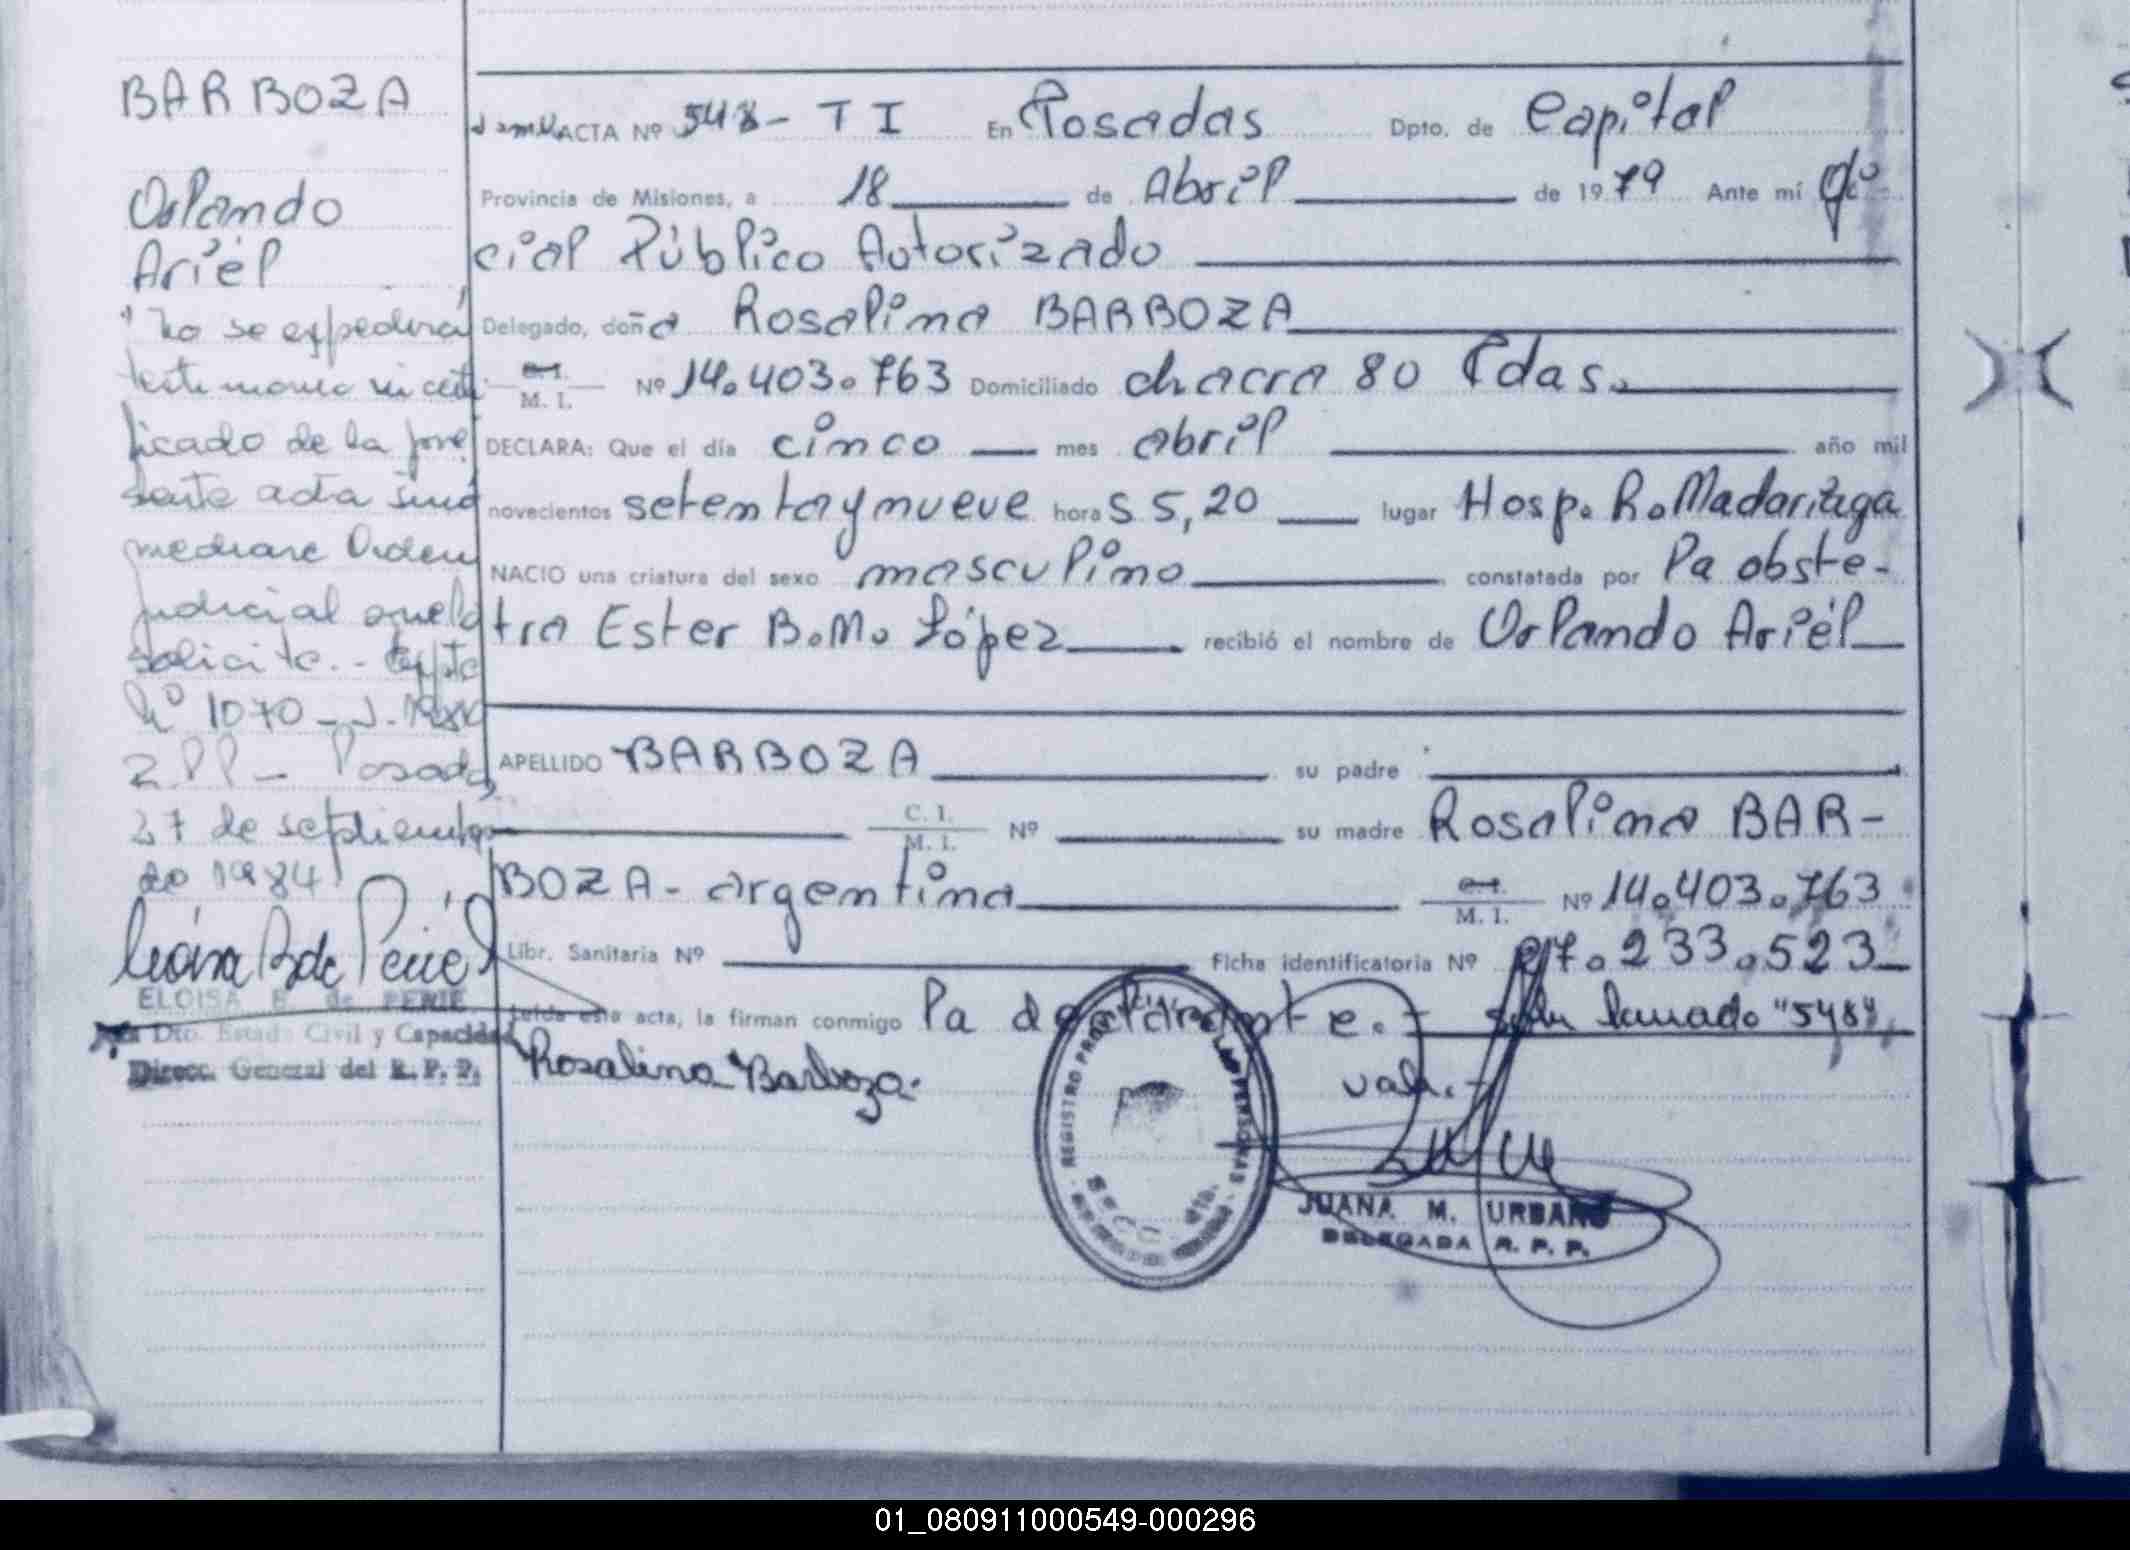 BARBOZA
Orlando
Ariél
"No se expedirá
testimonio ni certi
ficado de la pre
sente acta sinó
mediane Orden
judicial que lo
solicite.- Expte
Nº 1070-J-1984
RPP - Posadas
27 de septiembre
de 1984
ELOISA B. de PERIE
Dto. Estado Civil y Capacidad
Direcc. General del R. P. P.
ACTA Nº 548- T I En Posadas Dpto. de Capital
Provincia de Misiones, a 18 de Abril de 1979 Ante mí Ofi
cial Público Autorizado
Delegado, doña Rosalina BARBOZA
C.I. M. I. Nº 14.403.763 Domiciliado chacra 80 Pdas.
DECLARA: Que el día cinco mes abril año mil
novecientos setenta y nueve horas 5,20 lugar Hosp. R. Madariaga
NACIO una criatura del sexo masculino constatada por la obste-
tra Ester B.M. López recibió el nombre de Orlando Ariél
APELLIDO BARBOZA su padre
C. I. M. I. Nº su madre Rosalina BAR-
BOZA - argentina C.I. M. I. Nº 14.403.763
Libr. Sanitaria Nº Ficha identificatoria Nº 27.233.523
Leída esta acta, la firman conmigo la declarante.- "548"
Rosalina Barboza. vale.-
REGISTRO DE LAS PERSONAS
JUANA M. URBANO
DELEGADA R. P. P.
01_080911000549-000296